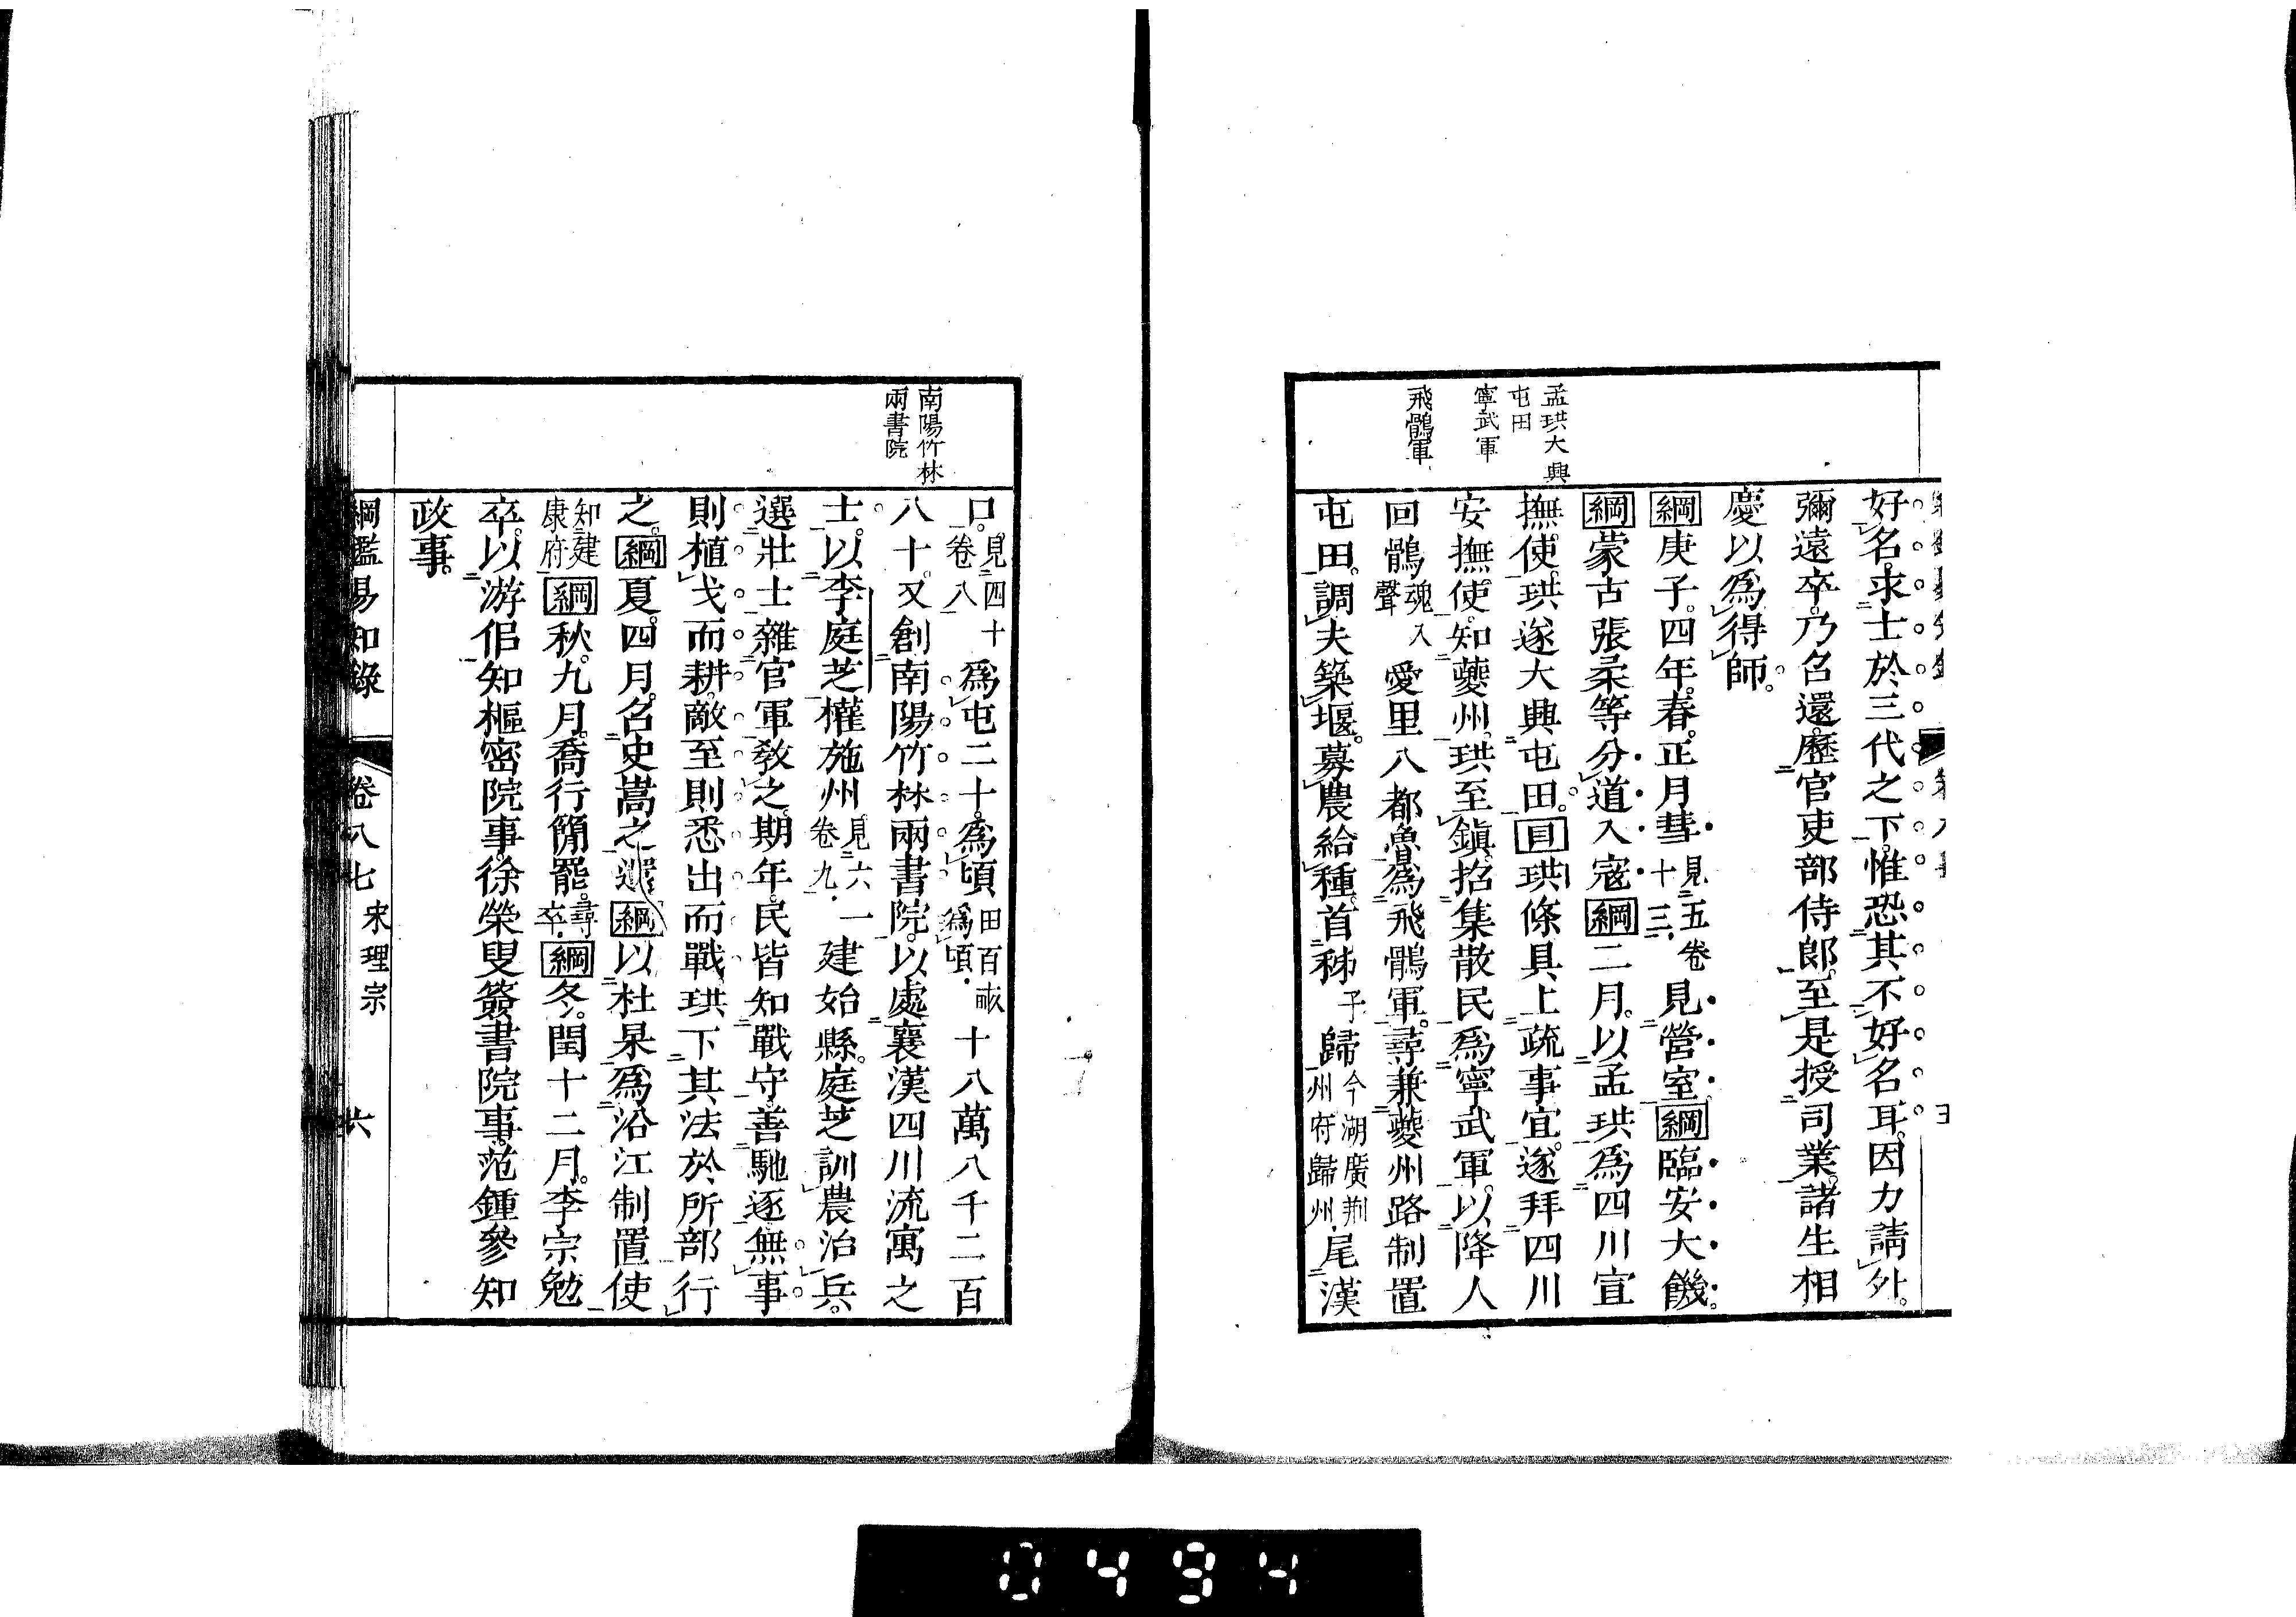 孟珙大興
屯田
寧武軍
飛鶻軍
好名。求士於三代之下。惟恐其不好名耳。因力請外。
彌遠卒。乃召還。歷官吏部侍郎。至是授司業。諸生相
慶以爲得師。
綱庚子。四年。春。正月彗見五卷十三見營室綱臨安大饑。
綱蒙古張柔等分道入寇綱二月。以孟珙爲四川宣
撫使。珙遂大興屯田。目珙條具上疏事宜。遂拜四川
安撫使。知夔州。珙至鎮。招集散民爲寧武軍。以降人
回鶻魂入聲愛里八都魯爲飛鶻軍。尋兼夔州路制置
屯田。調夫築堰。募農給種。首秭子歸今湖廣荆州府歸州尾漢
南陽竹林
兩書院
口。見四十卷八爲屯二十。爲頃田百畝爲頃十八萬八千二百
八十。又創南陽竹林兩書院。以處襄漢四川流寓之
士。以李庭芝權施州見六卷九一建始縣。庭芝訓農治兵。
選壯士雜官軍教之。期年。民皆知戰守。善馳逐。無事
則植戈而耕。敵至則悉出而戰。珙下其法於所部行
之。綱夏。四月。召史嵩之還綱以杜杲爲沿江制置使
知建康府綱秋。九月。喬行簡罷。尋卒綱冬。閏十二月。李宗勉
卒。以游佀知樞密院事。徐榮叟簽書院事。范鍾參知
政事。
綱鑑易知錄 卷八七 宋理宗 六
0494